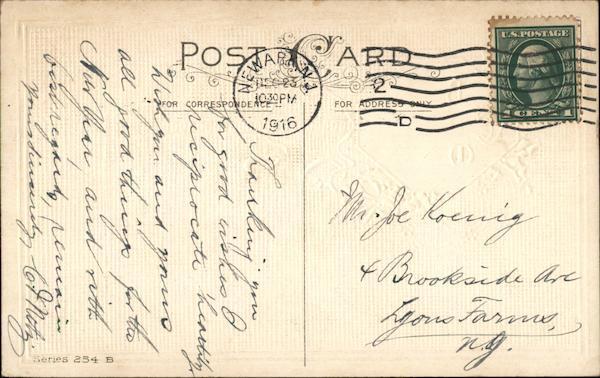 POST CARD
FOR CORRESPONDENCE
FOR ADDRESS ONLY
NEWARK, N.J.
DEC 28
10 30 PM
1916
2
D
U.S. POSTAGE
1 CENT 1
Thanking you
for good wishes I
reciprocate heartily
wish you and yours
all good things for the
New Year, and with
best regards, remain
yours sincerely
Mr. Joe Koenig
4 Brookside Ave
Lyons Farms,
N.J.
Series 254 B